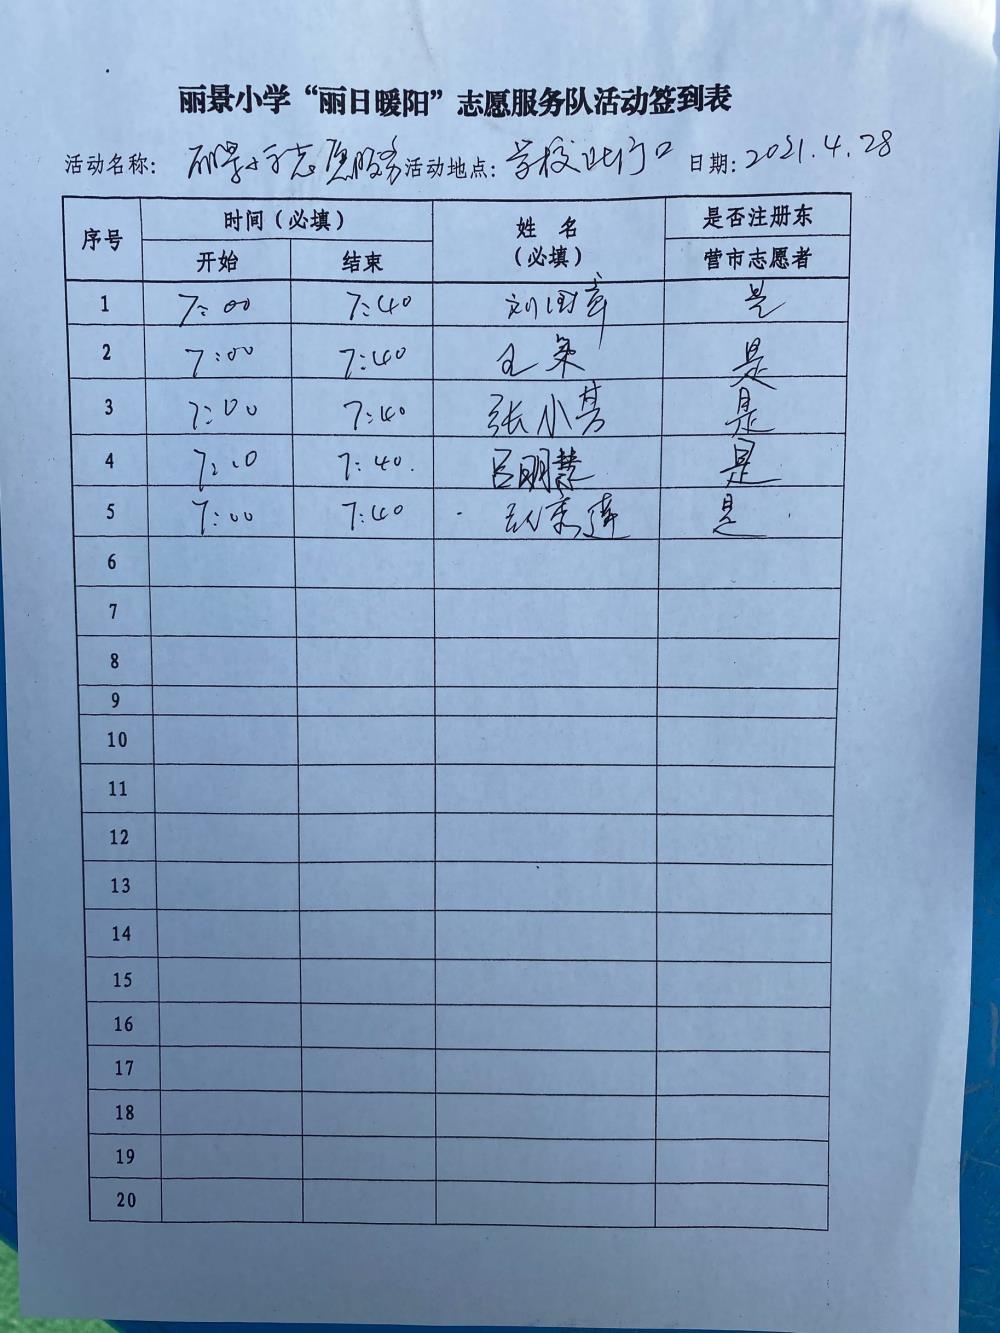 丽景小学“丽日暖阳”志愿服务队活动签到表
活动名称： 丽景小学志愿服务 活动地点： 学校北门口 日期： 2021.4.28
序号 时间（必填） 姓 名 （必填） 是否注册东
开始 结束 营市志愿者
1 7:00 7:40 刘国章 是
2 7:00 7:40 王 是
3 7:00 7:40 张小芳 是
4 7:00 7:40. 吕明慧 是
5 7:00 7:40 是
6
7
8
9
10
11
12
13
14
15
16
17
18
19
20